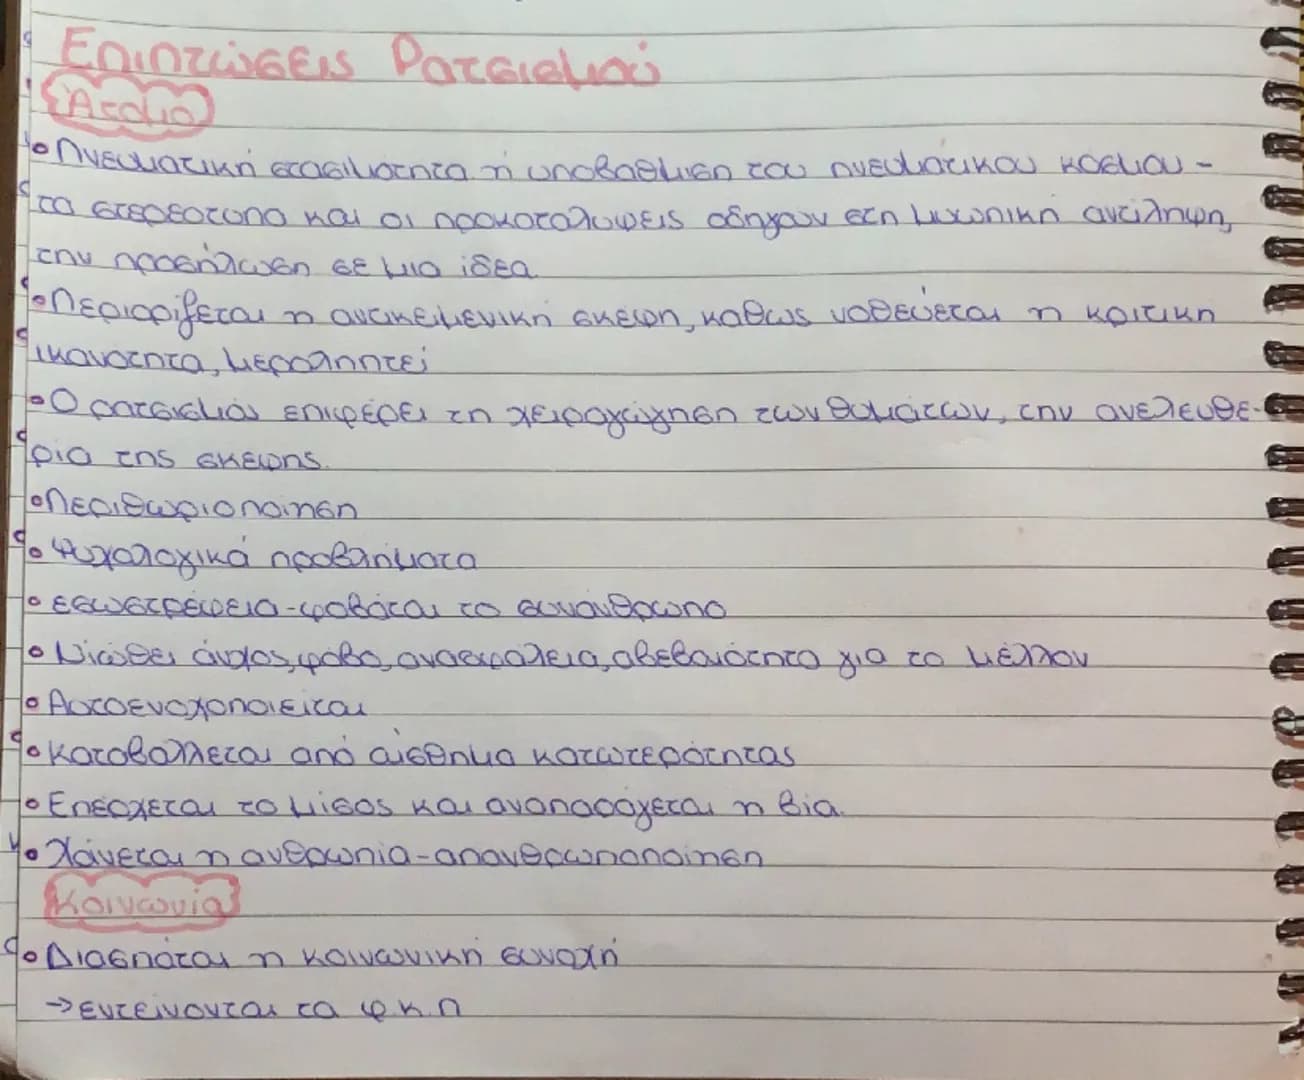 Επιπτώσεις Ρατσισμού
Άτομο
• Πνευματική στασιμότητα ή υποβαθμιση του πνευματικου κοσμου -
τα στερεοτυπα και οι προκαταλυψεις οδηγουν στη μιχανικη αντίληψη,
την προσήλωση σε μια ιδέα
• Περιορίζεται η αντικειμενική σκεψη, καθως νοθεύεται η κριτικη
ικανοτητα, μεροληπτεί
• Ο ρατσισμός επιφέρει τη χειραγώγηση των θυμάτων, την ανελευθε-
ρια της σκεψης.
• Περιθωριοποιηση
• Ψυχολογικά προβλήματα
• εσωστρέφεια-φοβάται το συνάνθρωπο
• Νιώθει άγχος, φόβο, ανασφάλεια, αβεβαιότητα για το μέλλον
• Αυτοενοχοποιειται
• Καταβάλλεται από αίσθημα κατωτερότητας
• Επέρχεται το μίσος και αναπαράγεται η βία.
• Χάνεται η ανθρωπιά-απανθρωποποίηση
Κοινωνία
• Διασπάται η κοινωνική συνοχή
→ εντείνονται τα φ.κ.π